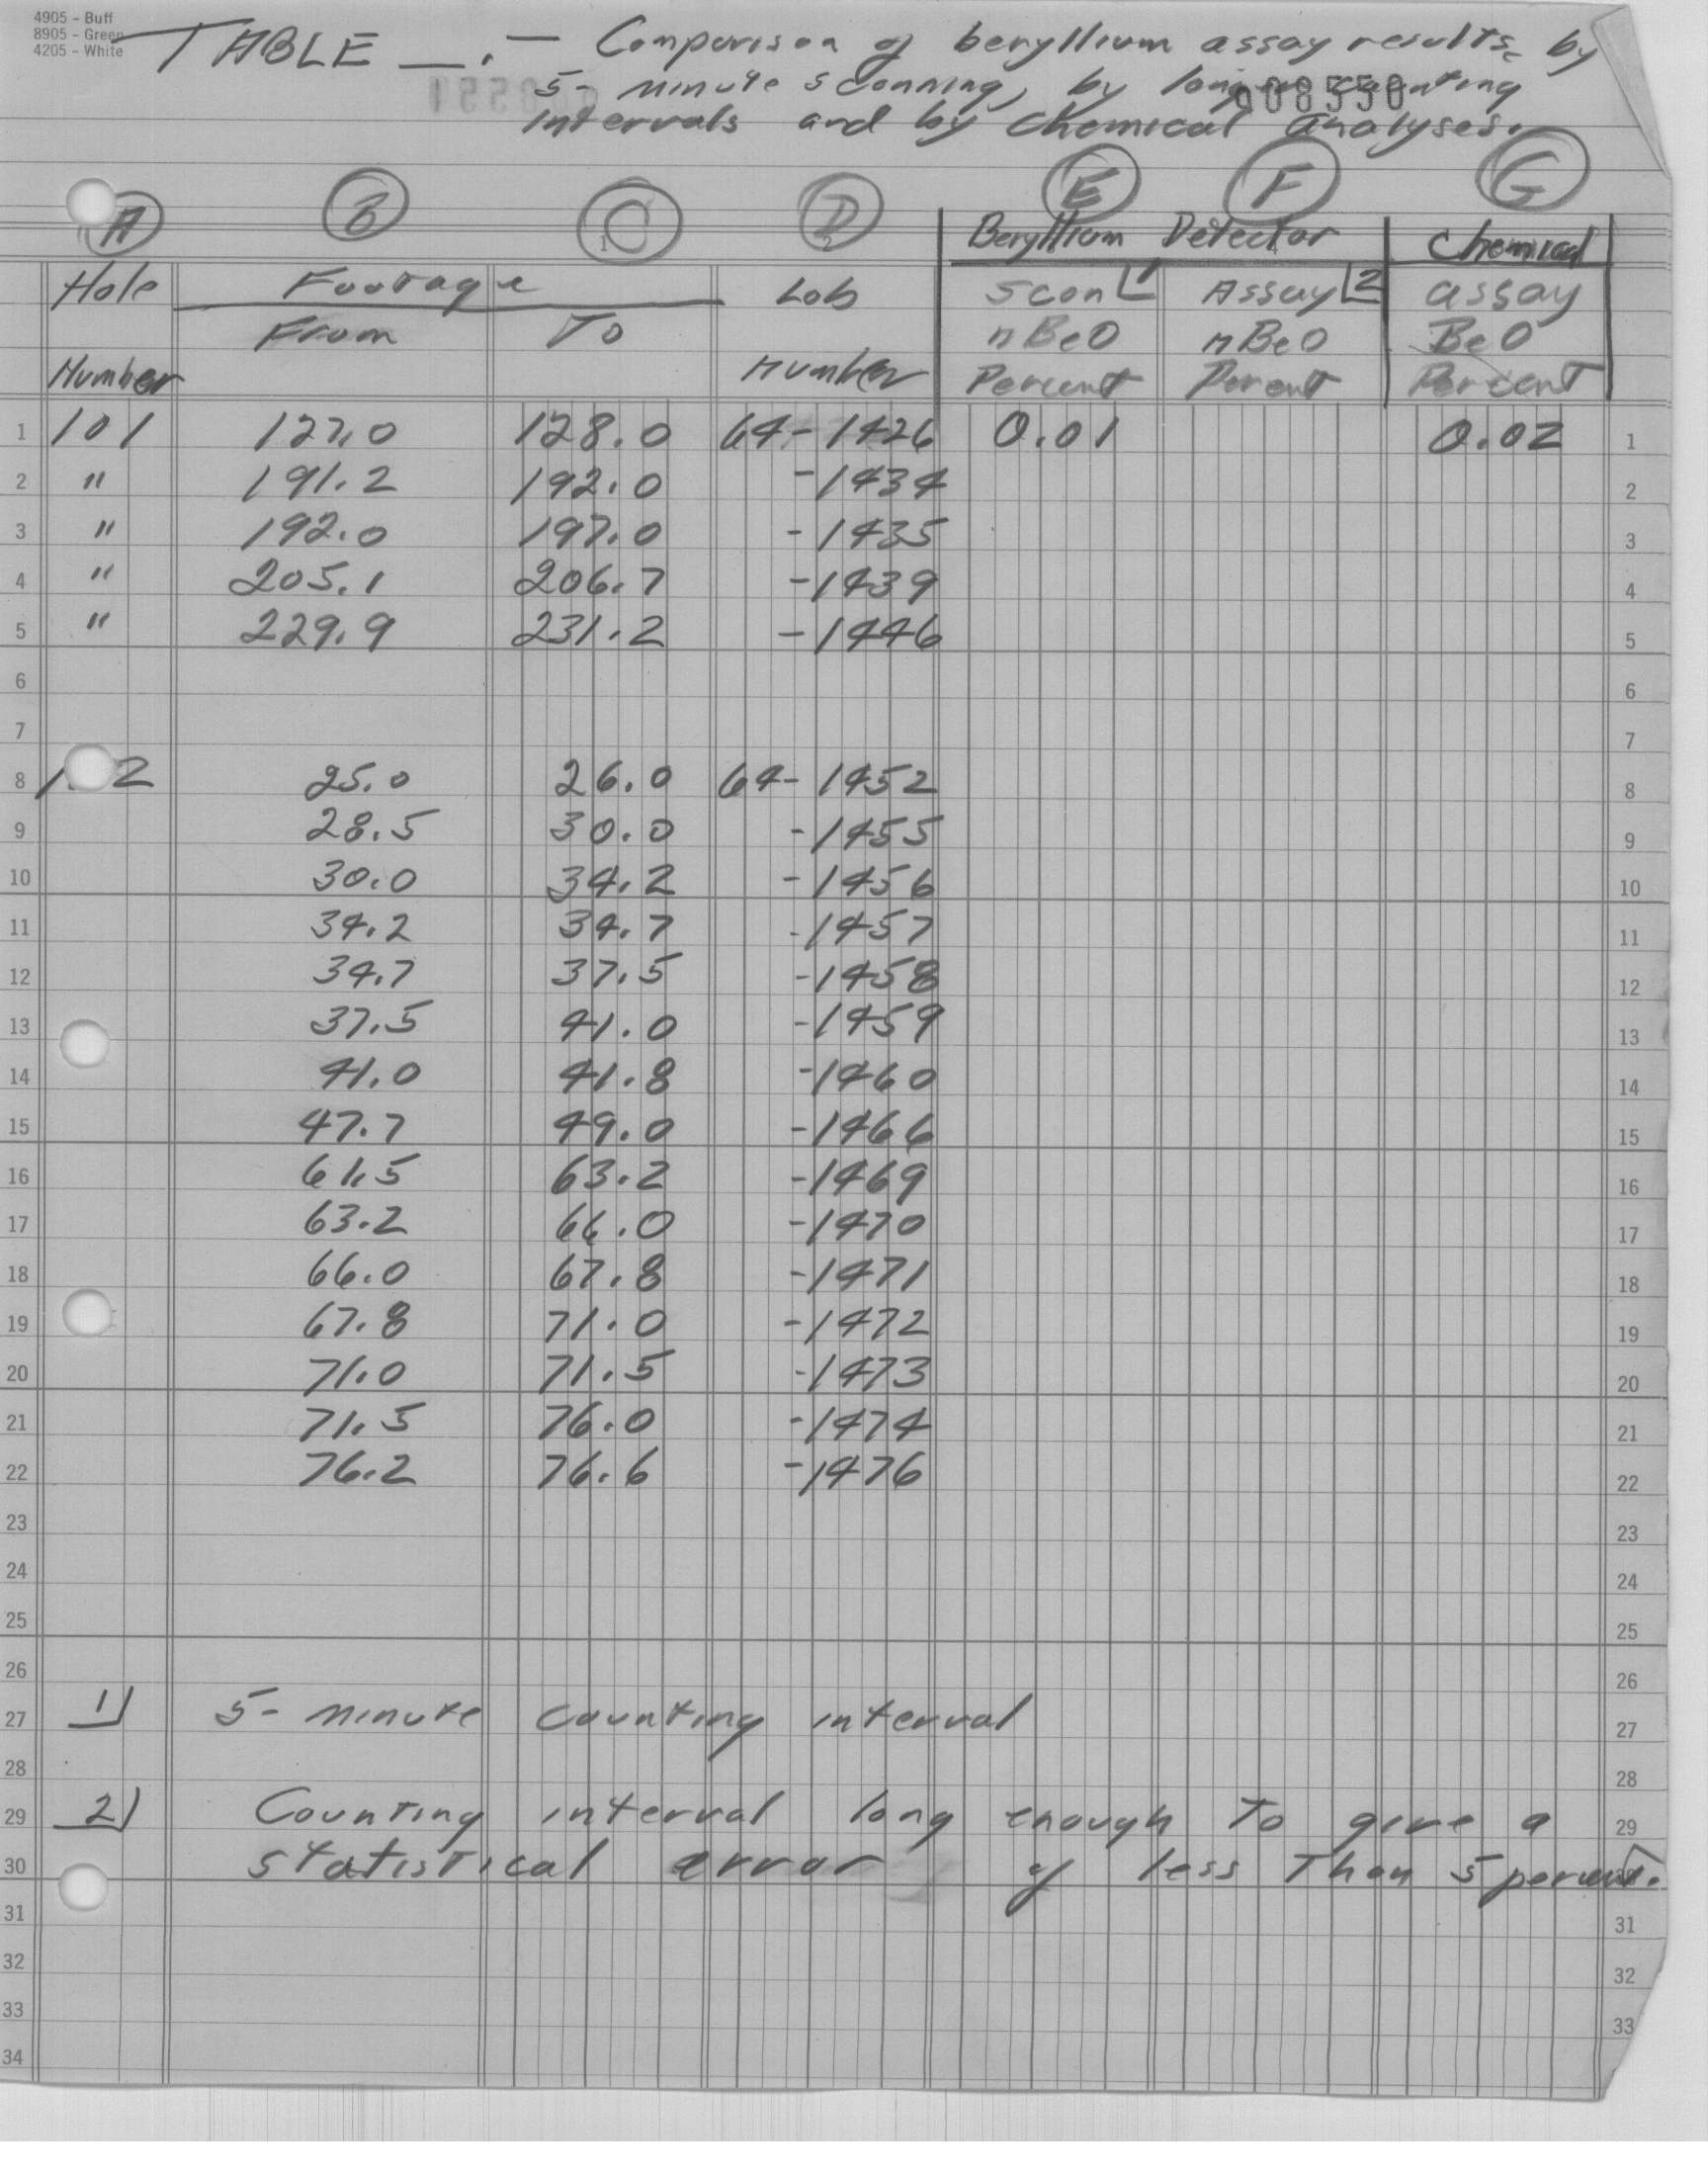 4905 - Buff
8905 - Green
4205 - White
TABLE __. — Comparison of beryllium assay results, by
5- minute scanning, by longer counting
008550
intervals and by chemical analyses.
A B C D E F G
Beryllium Detector Chemical
Hole Footage Lab Scan 1 Assay 2 assay
From To nBeO nBeO BeO
Number number Percent Percent Percent
1 101 127.0 128.0 64-1426 0.01 0.02 1
2 " 191.2 192.0 -1434 2
3 " 192.0 197.0 -1435 3
4 " 205.1 206.7 -1439 4
5 " 229.9 231.2 -1446 5
6 6
7 7
8 1 2 25.0 26.0 64-1452 8
9 28.5 30.0 -1455 9
10 30.0 34.2 -1456 10
11 34.2 34.7 -1457 11
12 34.7 37.5 -1458 12
13 37.5 41.0 -1459 13
14 41.0 41.8 -1460 14
15 47.7 49.0 -1466 15
16 61.5 63.2 -1469 16
17 63.2 66.0 -1470 17
18 66.0 67.8 -1471 18
19 67.8 71.0 -1472 19
20 71.0 71.5 -1473 20
21 71.5 76.0 -1474 21
22 76.2 76.6 -1476 22
23 23
24 24
25 25
26 26
27 1) 5- minute counting interval 27
28 28
29 2) Counting interval long enough to give a 29
30 statistical error of less than 5 percent.
31 31
32 32
33 33
34